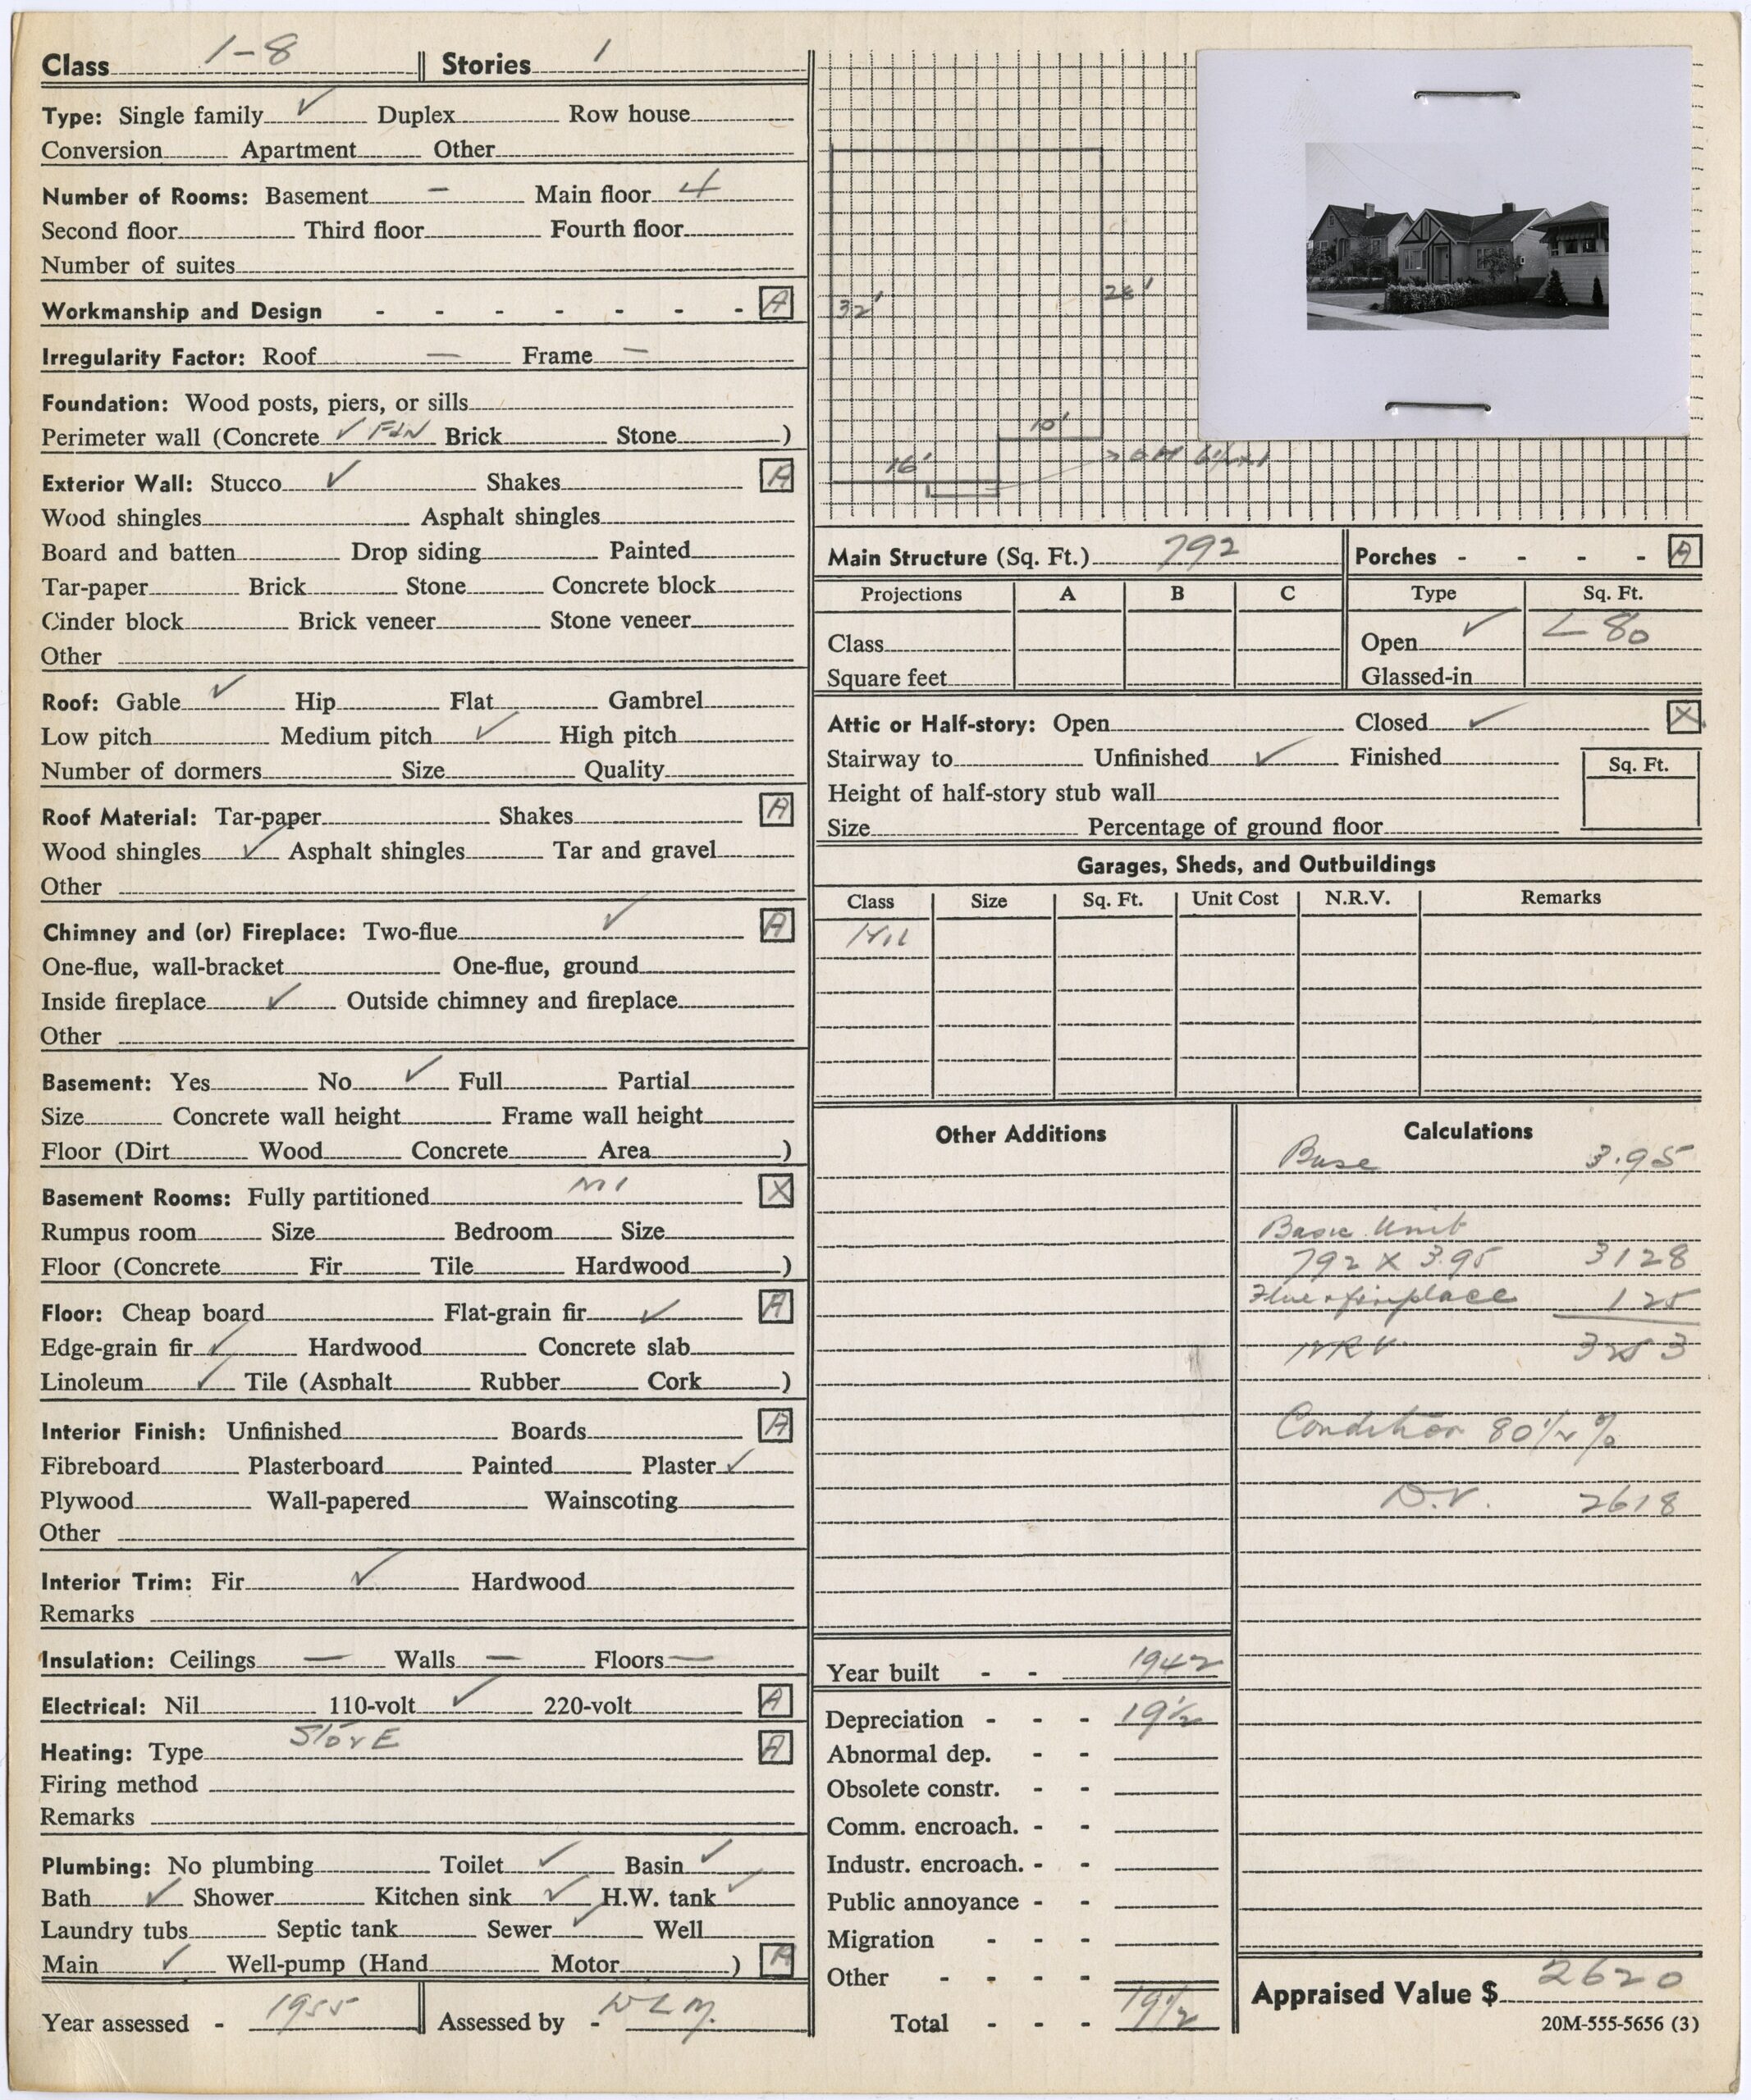 Class 1-8 Stories 1
Type: Single family ✓ Duplex Row house
Conversion Apartment Other
Number of Rooms: Basement - Main floor 4
Second floor Third floor Fourth floor
Number of suites
Workmanship and Design - - - - - - - A
Irregularity Factor: Roof — Frame —
Foundation: Wood posts, piers, or sills
Perimeter wall (Concrete ✓ FDN Brick Stone )
Exterior Wall: Stucco ✓ Shakes A
Wood shingles Asphalt shingles
Board and batten Drop siding Painted
Tar-paper Brick Stone Concrete block
Cinder block Brick veneer Stone veneer
Other
Roof: Gable ✓ Hip Flat Gambrel
Low pitch Medium pitch ✓ High pitch
Number of dormers Size Quality
Roof Material: Tar-paper Shakes A
Wood shingles ✓ Asphalt shingles Tar and gravel
Other
Chimney and (or) Fireplace: Two-flue ✓ A
One-flue, wall-bracket One-flue, ground
Inside fireplace ✓ Outside chimney and fireplace
Other
Basement: Yes No ✓ Full Partial
Size Concrete wall height Frame wall height
Floor (Dirt Wood Concrete Area )
Basement Rooms: Fully partitioned X
Rumpus room Size Bedroom Size
Floor (Concrete Fir Tile Hardwood )
Floor: Cheap board Flat-grain fir ✓ A
Edge-grain fir ✓ Hardwood Concrete slab
Linoleum ✓ Tile (Asphalt Rubber Cork )
Interior Finish: Unfinished Boards A
Fibreboard Plasterboard Painted Plaster ✓
Plywood Wall-papered Wainscoting
Other
Interior Trim: Fir ✓ Hardwood
Remarks
Insulation: Ceilings — Walls — Floors —
Electrical: Nil 110-volt ✓ 220-volt A
Heating: Type STOVE A
Firing method
Remarks
Plumbing: No plumbing Toilet ✓ Basin ✓
Bath ✓ Shower Kitchen sink ✓ H.W. tank ✓
Laundry tubs Septic tank Sewer ✓ Well
Main ✓ Well-pump (Hand Motor ) A
Year assessed - 1955 Assessed by - WLM.
32'
28'
10'
16'
Main Structure (Sq. Ft.) 792
Projections A B C
Class
Square feet
Porches - - - - A
Type Sq. Ft.
Open ✓ < 80
Glassed-in
Attic or Half-story: Open Closed ✓ X
Stairway to Unfinished ✓ Finished Sq. Ft.
Height of half-story stub wall
Size Percentage of ground floor
Garages, Sheds, and Outbuildings
Class Size Sq. Ft. Unit Cost N.R.V. Remarks
Nil
Other Additions
Year built - - 1942
Depreciation - - - 19½
Abnormal dep. - -
Obsolete constr. - -
Comm. encroach. - -
Industr. encroach. - -
Public annoyance - -
Migration - - -
Other - - - -
Total - - - 19½
Calculations
Base 3.95
Basic Unit
792 X 3.95 3128
Flue & fireplace 125
NRV 3253
Condition 80½%
D.V. 2618
Appraised Value $ 2620
20M-555-5656 (3)